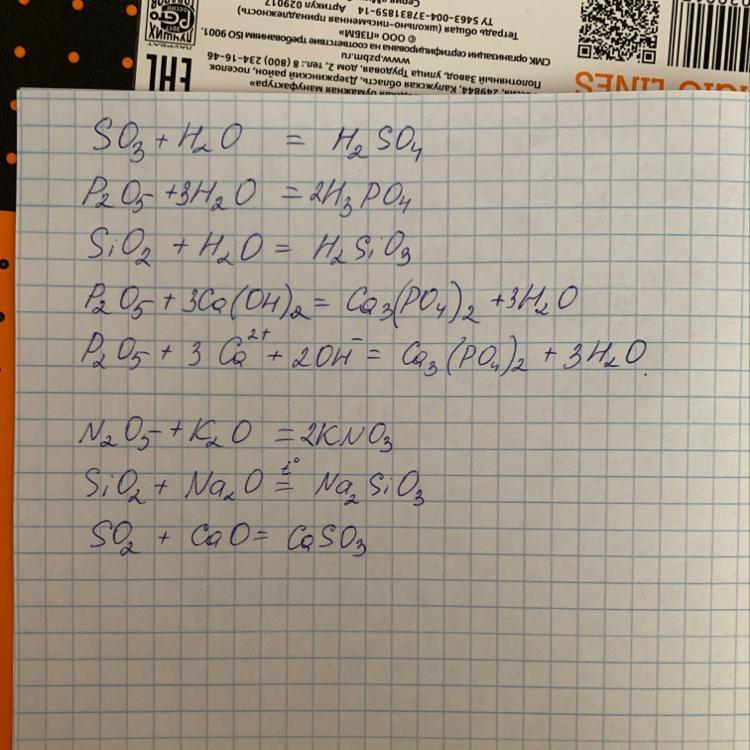 SO₃ + H₂O = H₂SO₄
P₂O₅ + 3H₂O = 2H₃PO₄
SiO₂ + H₂O = H₂SiO₃
P₂O₅ + 3Ca(OH)₂ = Ca₃(PO₄)₂ + 3H₂O
P₂O₅ + 3Ca²⁺ + 2OH⁻ = Ca₃(PO₄)₂ + 3H₂O.
N₂O₅ + K₂O = 2KNO₃
SiO₂ + Na₂O =t° Na₂SiO₃
SO₂ + CaO = CaSO₃
ТУ 5463-004-37831859-14 Артикул
Тетрадь общая (школьно-письменная принадлежность)
© ООО «ПЗБМ»
СМК организации сертифицирована на соответствие требованиям ISO 9001.
www.pzbm.ru
Полотняный Завод, улица Трудовая, дом 2, тел.: 8 (800) 234-16-46
249844, Калужская область, Дзержинский район, поселок
бумажная мануфактура»
ЕАС
LINES